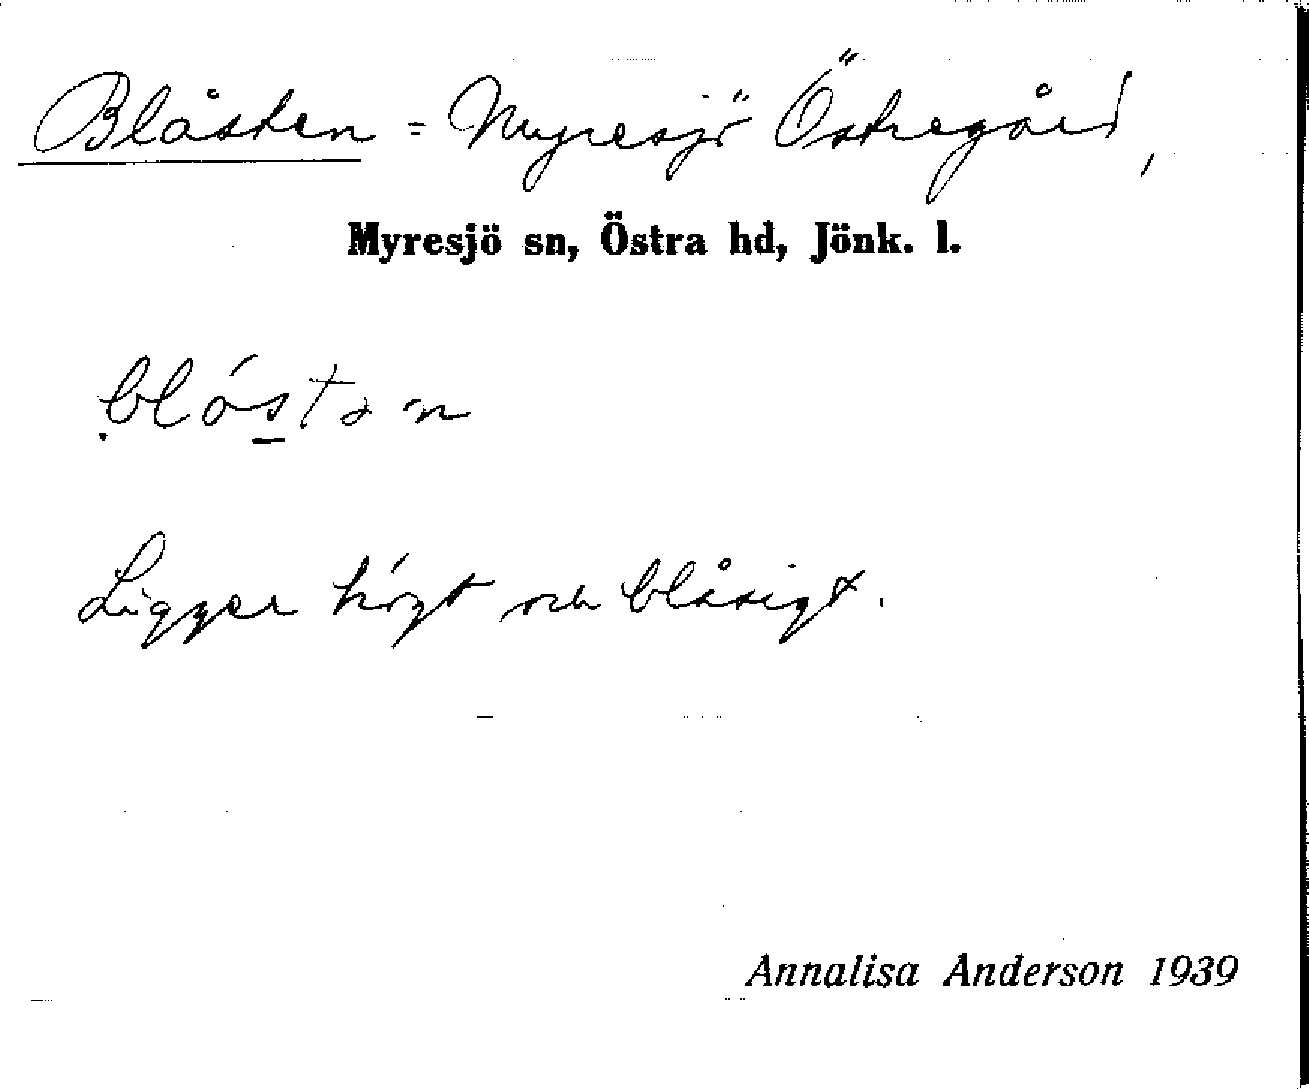 Blåsten = Myresjö Östregård,
Myresjö sn, Östra hd, Jönk. l.
blóstən
Ligger högt och blåsigt.
Annalisa Anderson 1939